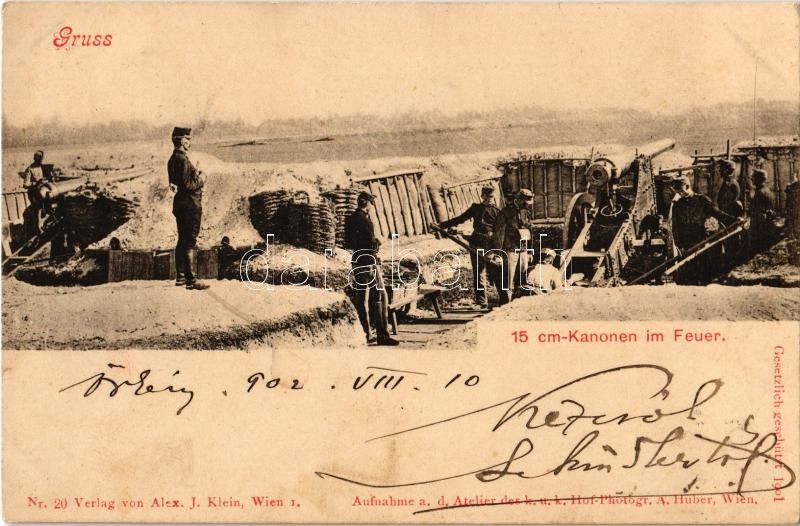 Gruss
darabanth
15 cm-Kanonen im Feuer.
Örkény . 902 . VIII . 10
Gesetzlich geschützt 1901
Nr. 20 Verlag von Alex. J. Klein, Wien 1.
Aufnahme a. d. Atelier des k. u. k. Hof-Photogr. A. Huber, Wien.